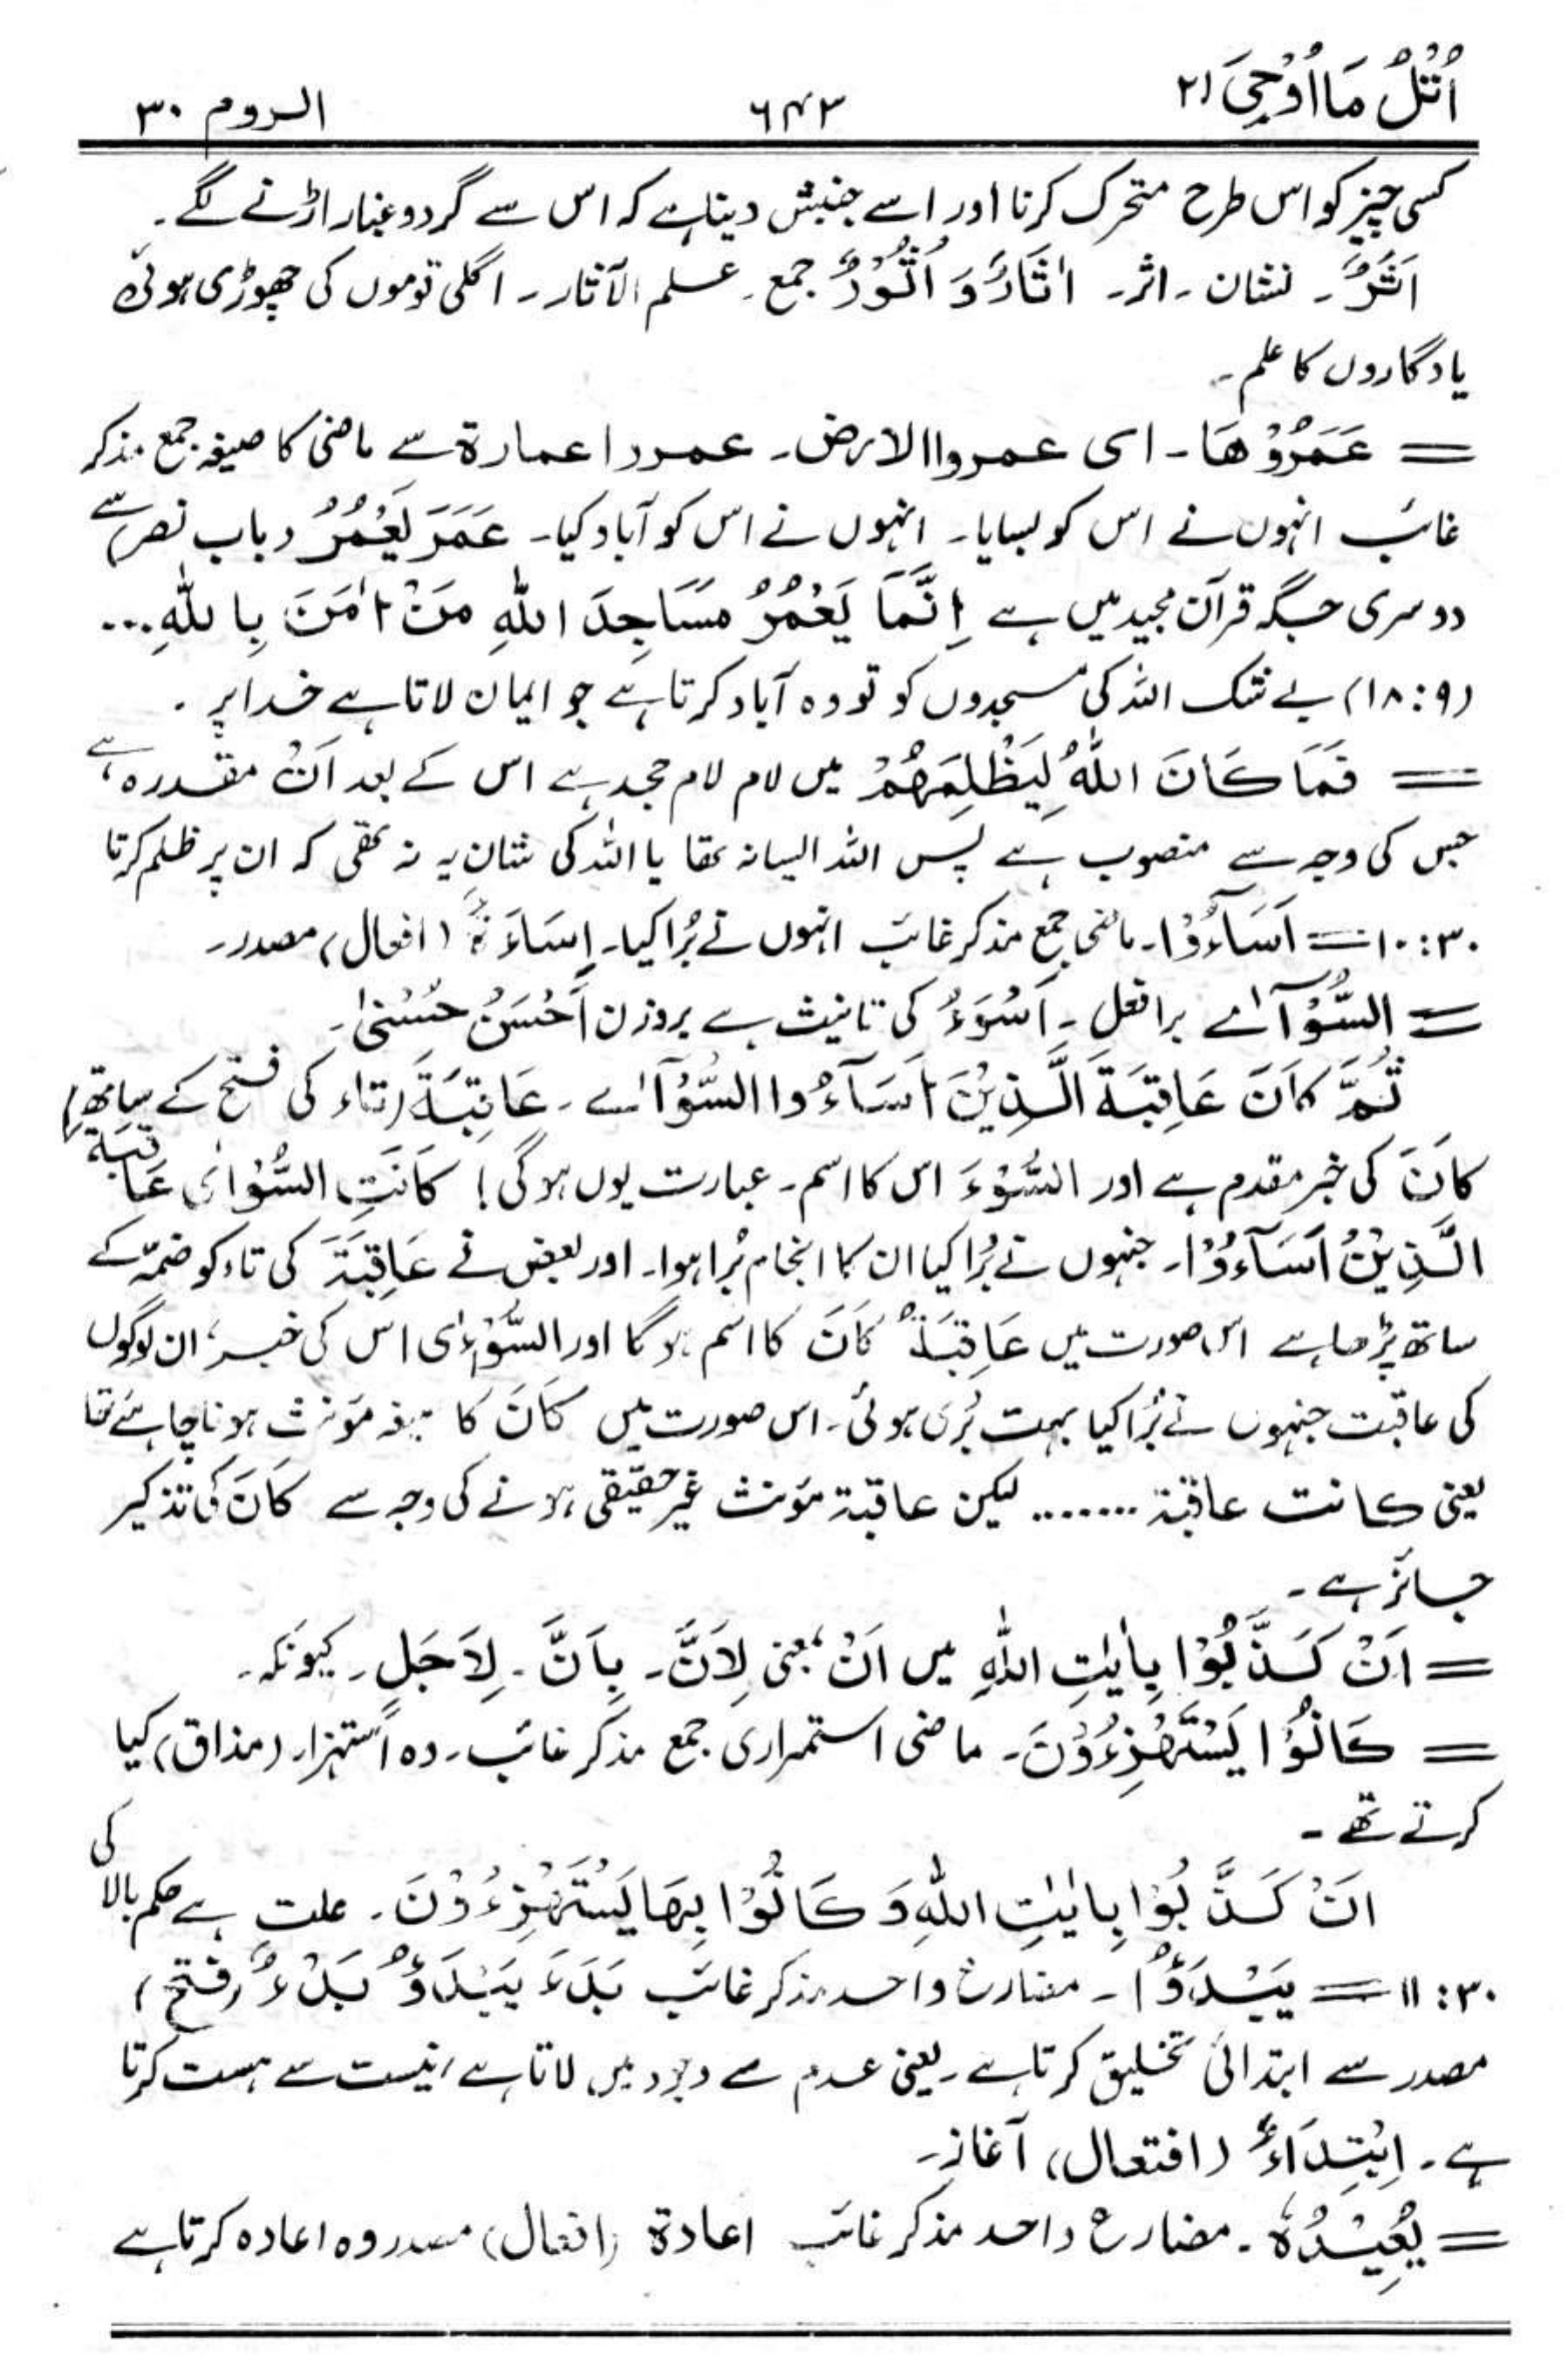 اُتْلُ مَا اُوْحِیَ ۲۱
۶۴۳
الروم ۳۰
کسی چیز کو اس طرح متحرک کرنا اور اسے جنبش دینا ہے کہ اس سے گرد و غبار اڑنے لگے۔
اَثَرٌ۔ نشان۔ اثر۔ اٰثَارٌ وَ اُثُوْرٌ جمع۔ علم الآثار۔ اگلی قوموں کی چھوڑی ہوئی
یادگاروں کا علم۔
= عَمَرُوْهَا۔ ای عمروا الارض۔ عمروا عمارة سے ماضی کا صیغہ جمع مذکر
غائب انہوں نے اس کو بسایا۔ انہوں نے اس کو آباد کیا۔ عَمَرَ یَعْمُرُ (باب نصر) سے
دوسری جگہ قرآن مجید میں ہے اِنَّمَا یَعْمُرُ مَسَاجِدَ اللّٰهِ مَنْ اٰمَنَ بِاللّٰهِ...
(۹: ۱۸) بے شک اللہ کی مسجدوں کو تو وہ آباد کرتا ہے جو ایمان لاتا ہے خدا پر۔
= فَمَا كَانَ اللّٰهُ لِیَظْلِمَهُمْ میں لام لام جحد ہے اس کے بعد اَنْ مقدرہ ہے
جس کی وجہ سے منصوب ہے پس اللہ ایسا نہ تھا یا اللہ کی شان یہ نہ تھی کہ ان پر ظلم کرتا
۳۰: ۱۰ = اَسَآءُوْا۔ ماضی جمع مذکر غائب انہوں نے بُرا کیا۔ اِسَاءَةٌ (افعال) مصدر۔
= السُّوْآٰے برا فعل۔ اَسْوَءُ کی تانیث ہے بروزن اَحْسَنُ حُسْنٰی۔
ثُمَّ كَانَ عَاقِبَةَ الَّذِیْنَ اَسَآءُوا السُّوْآٰے۔ عَاقِبَةَ (تاء کی فتح کے ساتھ)
كَانَ کی خبر مقدم ہے اور السُّوْءَ اس کا اسم۔ عبارت یوں ہوگی! كَانَتِ السُّوْاٰی عَاقِبَة
الَّذِیْنَ اَسَآءُوْا۔ جنہوں نے بُرا کیا ان کا انجام بُرا ہوا۔ اور بعض نے عَاقِبَةَ کی تاء کو ضمّہ کے
ساتھ پڑھا ہے اس صورت میں عَاقِبَةُ كَانَ کا اسم ہوگا اور السُّوْءٰی اس کی خبر، ان لوگوں
کی عاقبت جنہوں نے بُرا کیا بہت بُری ہوئی۔ اس صورت میں كَانَ کا صیغہ مؤنث ہونا چاہئے تھا
یعنی كانت عاقبة ....... لیکن عاقبة مؤنث غیر حقیقی ہونے کی وجہ سے كَانَ کی تذکیر
جائز ہے۔
= اَنْ كَذَّبُوْا بِاٰیٰتِ اللّٰهِ میں اَنْ بمعنی لِاَنَّ۔ بِاَنَّ۔ لِاَجَلِ۔ کیونکہ۔
= كَانُوْا یَسْتَهْزِءُوْنَ۔ ماضی استمراری جمع مذکر غائب۔ وہ استہزاء (مذاق) کیا
کرتے تھے۔
اَنْ كَذَّبُوْا بِاٰیٰتِ اللّٰهِ وَ كَانُوْا بِهَا یَسْتَهْزِءُوْنَ۔ علت ہے حکم بالا کی
۳۰: ۱۱ = یَبْدَؤُا۔ مضارع واحد مذکر غائب بَدَءَ یَبْدَؤُ بَدْءٌ (فتح)
مصدر سے ابتدائی تخلیق کرتا ہے۔ یعنی عدم سے وجود میں لاتا ہے، نیست سے ہست کرتا
ہے۔ اِبْتِدَاءٌ (افتعال) آغاز۔
= یُعِیْدُهٗ۔ مضارع واحد مذکر غائب اعادة (افعال) مصدر وہ اعادہ کرتا ہے